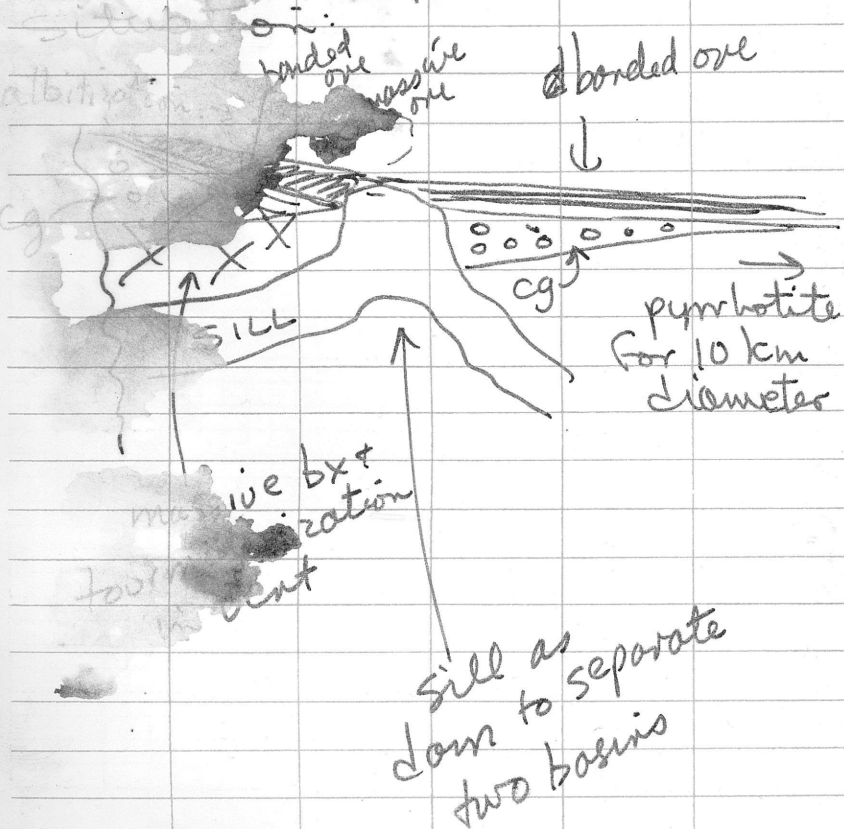 situation:
albitization
banded
ore
massive
ore
banded ore
cg
cg
SILL
pyrrhotite
for 10 km
diameter
massive bx +
in vent
sill as
dam to separate
two basins